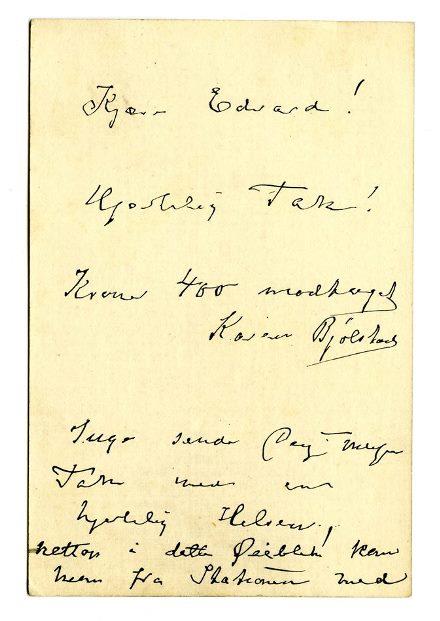 Kjære Edvard!
Hjertelig Tak!
Kroner 400 modtaget
Karen Bjölstad
Inger sender
Tak med en
hjertelig Hilsen,
netop i dette Øieblik kom
hem fra Stationen med